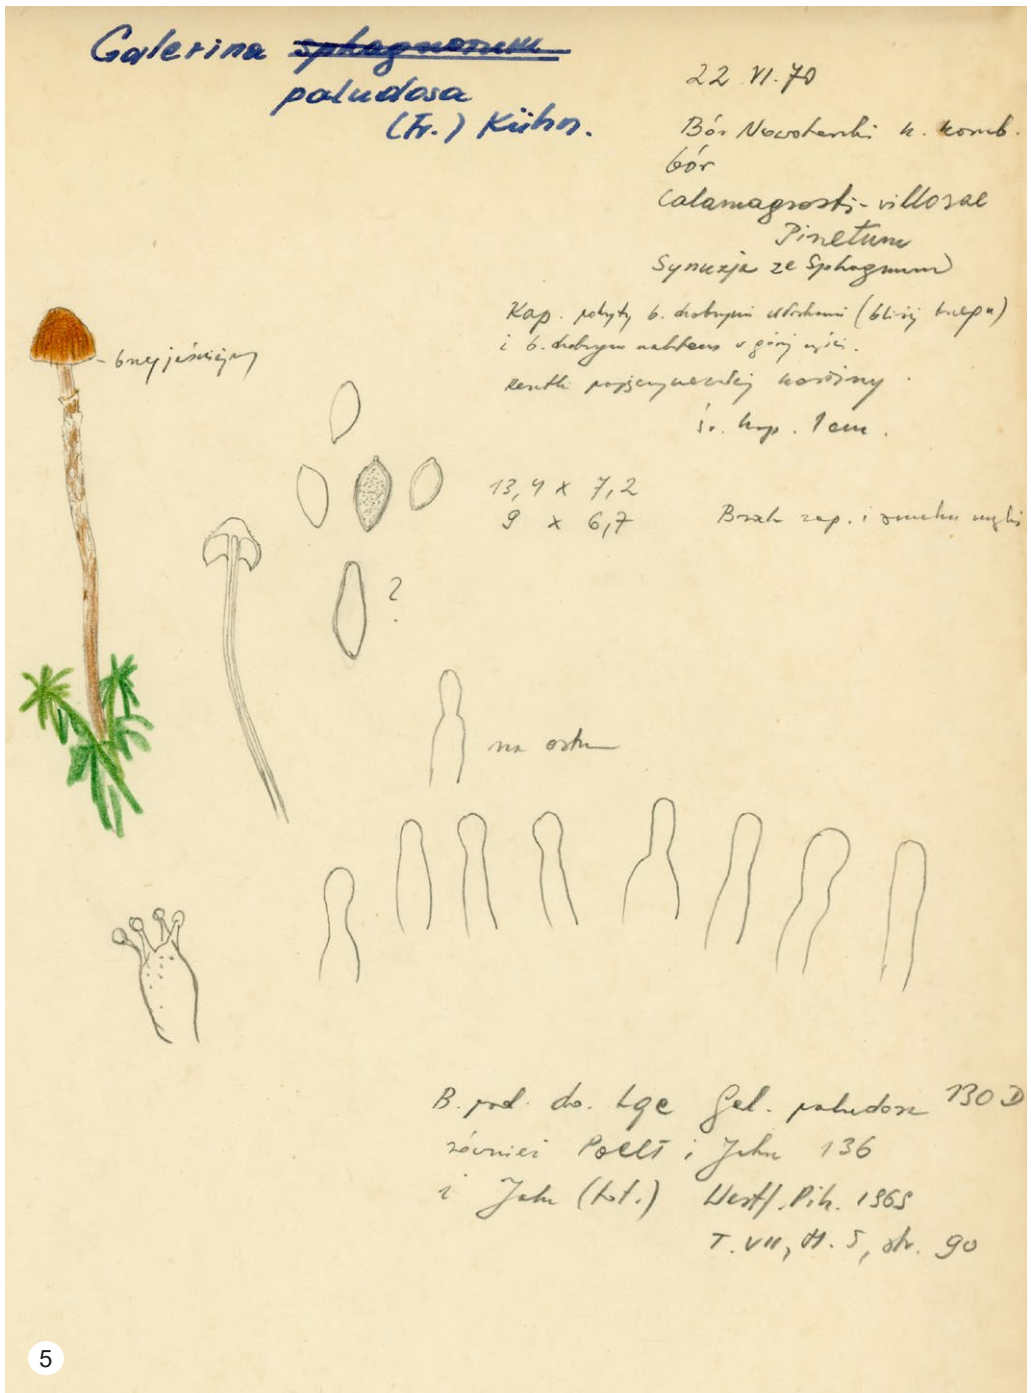 Galerina sphagnorum
paludosa
(Fr.) Kühn.
22 VI. 70
Bór Nowotarski k. komb.
bór
Calamagrosti-villosae
Pinetum
Synuzja ze Sphagnum
Kap. pokryty b. drobnymi włoskami (bliżej brzegu)
i b. drobnym nalotem w górnej części.
resztki zasnówki
śr. kap. 1 cm.
brzeg jaśniejszy
13,4 x 7,2
9 x 6,7
Brak zap. i smaku mąki
?
na ostrzu
B. pod. do. Lge Gal. paludosa 130 D
również Poelt i Jahn 136
i Jahn (fot.) Westf. Pilz. 1969
T. VII, H. 5, str. 90
5